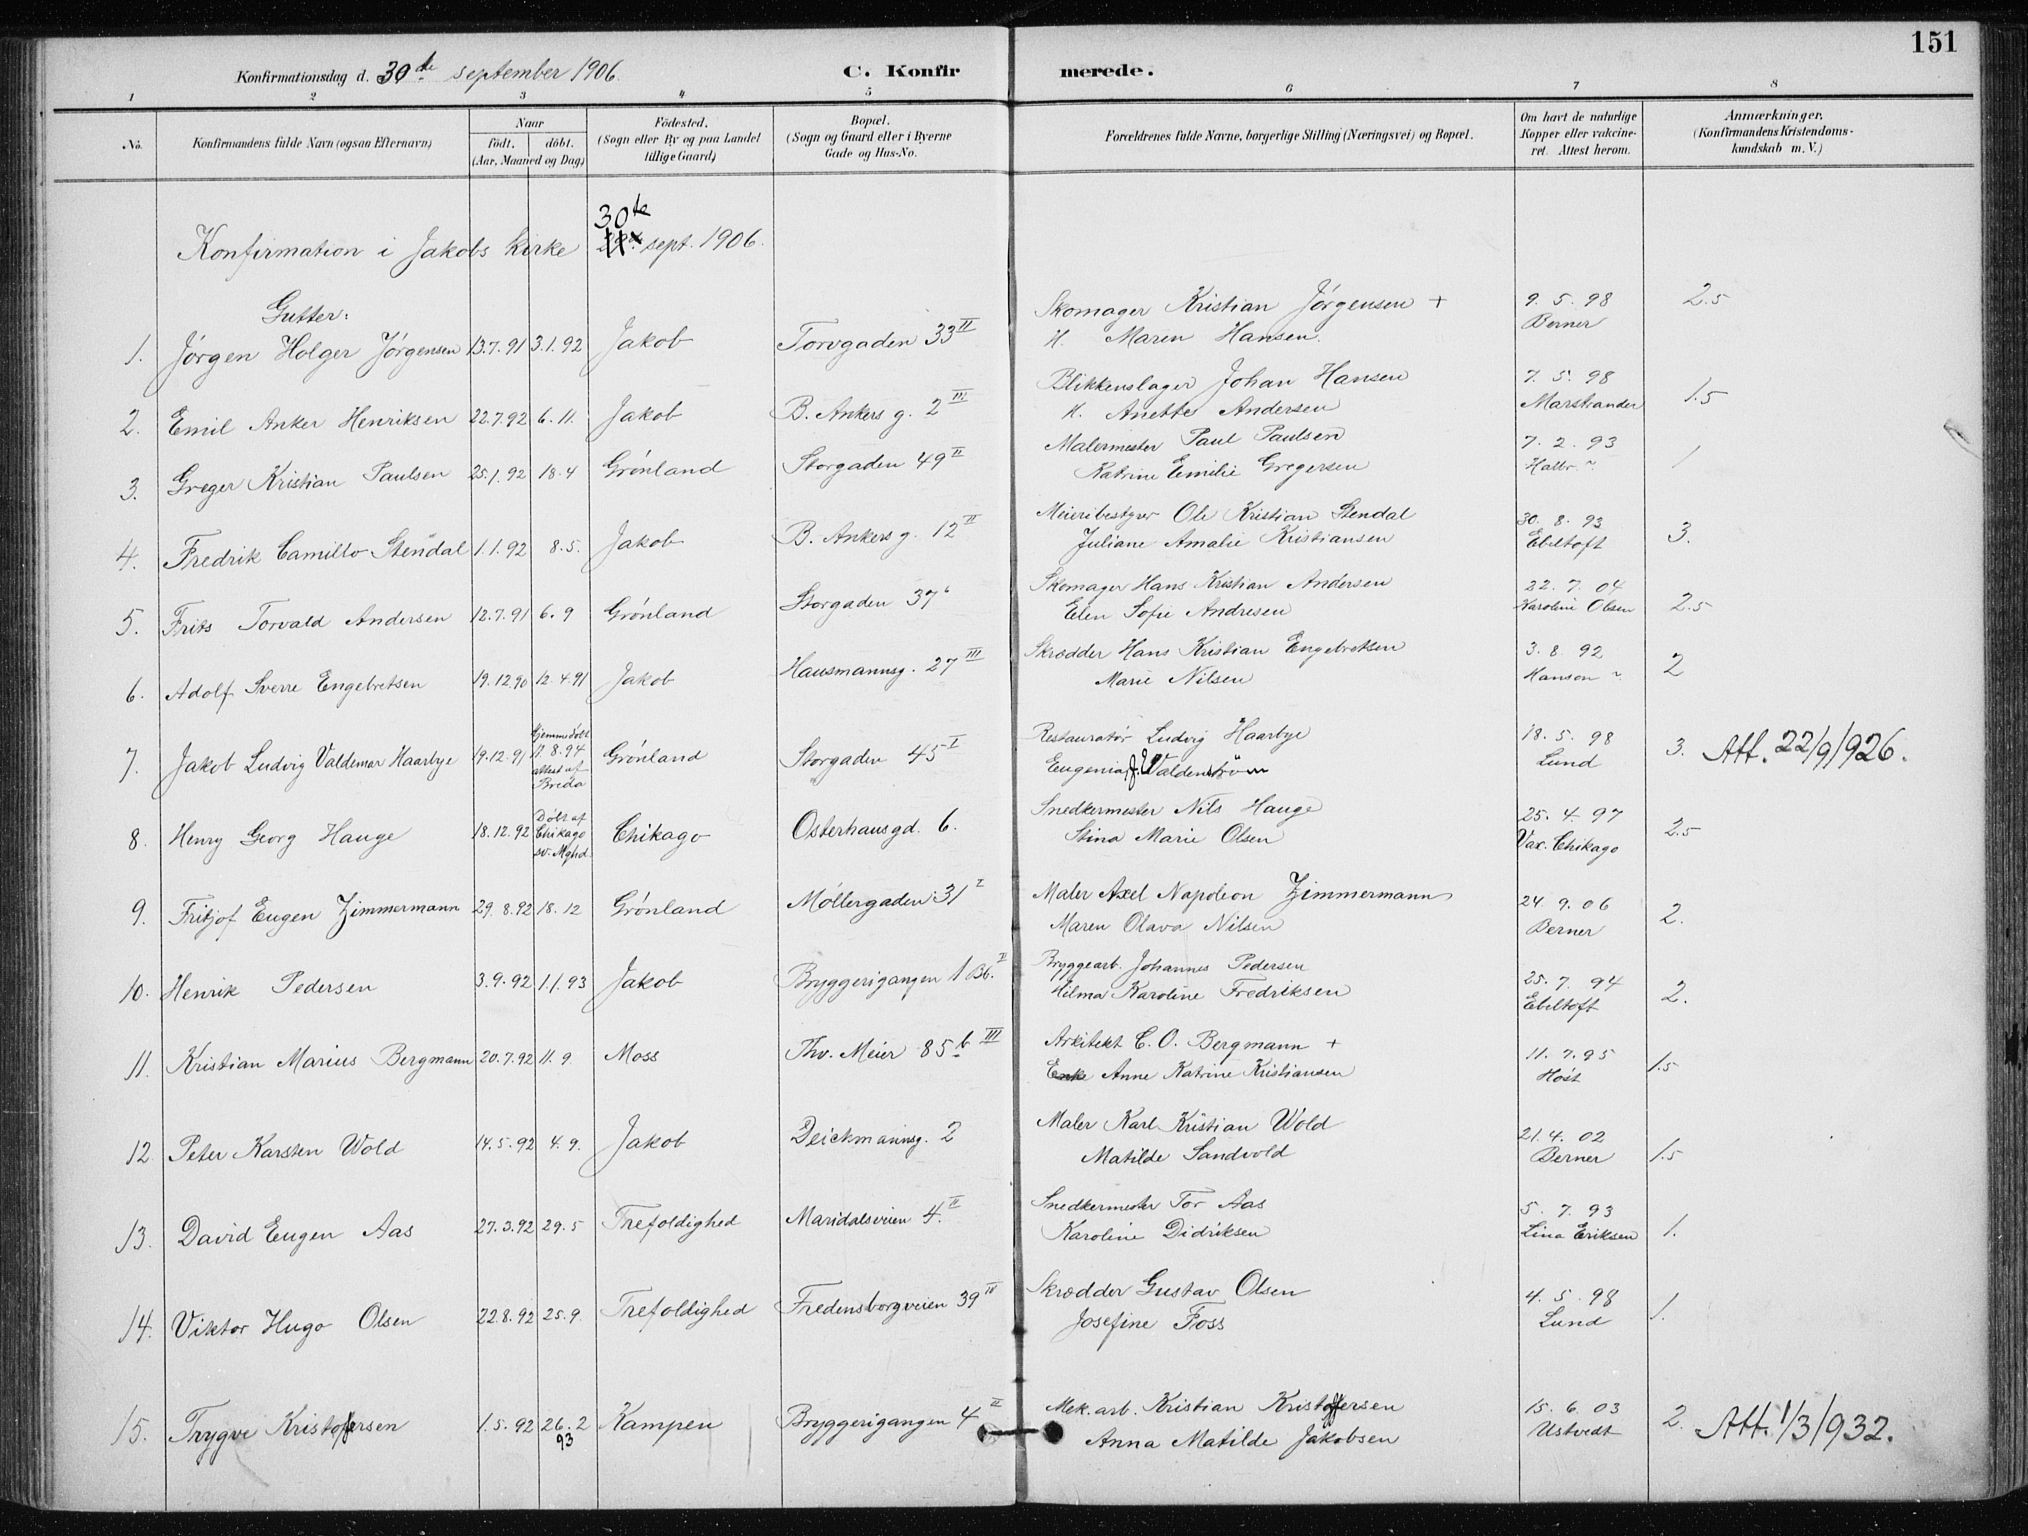 151
Konfirmationsdag d. 30de september 1906.
C. Konfirmerede.
1 2 3 4 5 6 7 8
No. Konfirmandens fulde Navn (ogsaa Efternavn) Naar født. døbt. (Aar, Maaned og Dag) Fødested. (Sogn eller By og paa Landet tillige Gaard) Bopæl. (Sogn og Gaard eller i Byerne Gade og Hus-No. Forældrenes fulde Navne, borgerlige Stilling (Næringsvei) og Bopæl. Om havt de naturlige Kopper eller vakcineret. Attest herom. Anmærkninger. (Konfirmandens Kristendomskundskab m. V.)
30te
Konfirmation i Jakobs Kirke sept. 1906.
Gutter:
1. Jørgen Holger Jørgensen 13.7.91 3.1.92 Jakob Torvgaden 33 II Skomager Kristian Jørgensen + 9. 5. 98 2.5
H. Maren Hansen. Berner
2. Emil Anker Henriksen 22.7.92 6.11. Jakob B. Ankers g. 2 III Blikkenslager Johan Hansen 7. 5. 98 1.5
H. Anette Andersen Marstrander
3. Greger Kristian Paulsen 25.1.92 18.4 Grønland Storgaden 49 II Malermester Paul Paulsen 7. 2. 93 1
Katrine Emilie Gregersen
4. Fredrik Camillo Stendal 1.1.92 8.5. Jakob B. Ankers g. 12 II Meieribestyrer Ole Kristian Stendal 30. 8. 93 3.
Juliane Amalie Kristiansen Ebeltoft
5. Frits Torvald Andersen 12.7.91 6.9 Grønland Storgaden 37 Skomager Hans Kristian Andersen 22. 7. 04 2.5
Elen Sofie Andresen Karoline Olsen
6. Adolf Sverre Engebretsen 19.12.90 12.4.91 Jakob Hausmannsg. 27 III Skrædder Hans Kristian Engebretsen 3. 8. 92 2
Marie Nilsen Hanson
7. Jakob Ludvig Valdemar Haarbye 19.12.91 Hjemmedøbt 8.94 attest af Breda Grønland Storgaden 45 I Restauratør Ludvig Haarbye 18. 5. 98 3. Att. 22/9/926.
Eugenia J. Valdenstrøm Lund
8. Henry Georg Hauge 18.12.92 Døbt af Chikago sv. Mghd. Chikago Osterhausgd. 6. Snedkermester Nils Hauge 25. 4. 97 2.5
Stina Marie Olsen Vax. Chikago
9. Fritjof Eugen Zimmermann 29.8.92 18.12 Grønland Møllergaden 31 I Maler Axel Napoleon Zimmermann 24 9. 06 2.
Maren Olava Nilsen Berner
10. Henrik Pedersen 3.9.92 1.1.93 Jakob Bryggerigangen 1 II Bryggearb. Johannes Pedersen 25. 7. 94 2.
Hilma Karoline Fredriksen Ebeltoft
11. Kristian Marius Bergmann 20.7.92 11.9. Moss Thv. Meier 85 b III Arkitekt C. O. Bergmann + 11. 7. 95 1.5
Enke Anne Katrine Kristiansen Høst
12. Peter Karsten Wold 14.5.92 4.9. Jakob Deichmannsg. 2 Maler Karl Kristian Wold 21. 4. 02 1.5
Matilde Sandvold Berner
13. David Eugen Aas 27.3.92 29.5 Trefoldighed Maridalsveien 4. II Snedkermester Tor Aas 5. 7. 93 1.
Karoline Didriksen Lina Eriksen
14. Viktor Hugo Olsen 22.8.92 25.9. Trefoldighed Fredensborgveien 39 III Skrædder Gustav Olsen 4. 5. 98 1.
Josefine Foss Lund
15. Trygve Kristofersen 1.5.92 26.2 93 Kampen Bryggerigangen 4 II Mek. arb. Kristian Kristofersen 15. 6. 03 2. Att. 1/3/932.
Anna Matilde Jakobsen Ustvedt